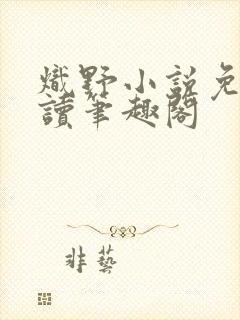 熾野小説免
讀筆趣閣
非藝